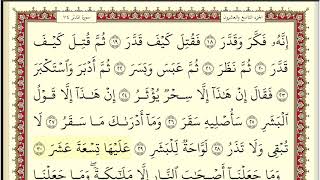 الجزء التاسع والعشرون سورة المدثر ٧٤
إِنَّهُۥ فَكَّرَ وَقَدَّرَ ١٨ فَقُتِلَ كَيْفَ قَدَّرَ ١٩ ثُمَّ قُتِلَ كَيْفَ
قَدَّرَ ٢٠ ثُمَّ نَظَرَ ٢١ ثُمَّ عَبَسَ وَبَسَرَ ٢٢ ثُمَّ أَدْبَرَ وَٱسْتَكْبَرَ
٢٣ فَقَالَ إِنْ هَٰذَآ إِلَّا سِحْرٌ يُؤْثَرُ ٢٤ إِنْ هَٰذَآ إِلَّا قَوْلُ
ٱلْبَشَرِ ٢٥ سَأُصْلِيهِ سَقَرَ ٢٦ وَمَآ أَدْرَىٰكَ مَا سَقَرُ ٢٧ لَا
تُبْقِى وَلَا تَذَرُ ٢٨ لَوَّاحَةٌ لِّلْبَشَرِ ٢٩ عَلَيْهَا تِسْعَةَ عَشَرَ ٣٠
وَمَا جَعَلْنَآ أَصْحَٰبَ ٱلنَّارِ إِلَّا مَلَٰٓئِكَةً وَمَا جَعَلْنَا